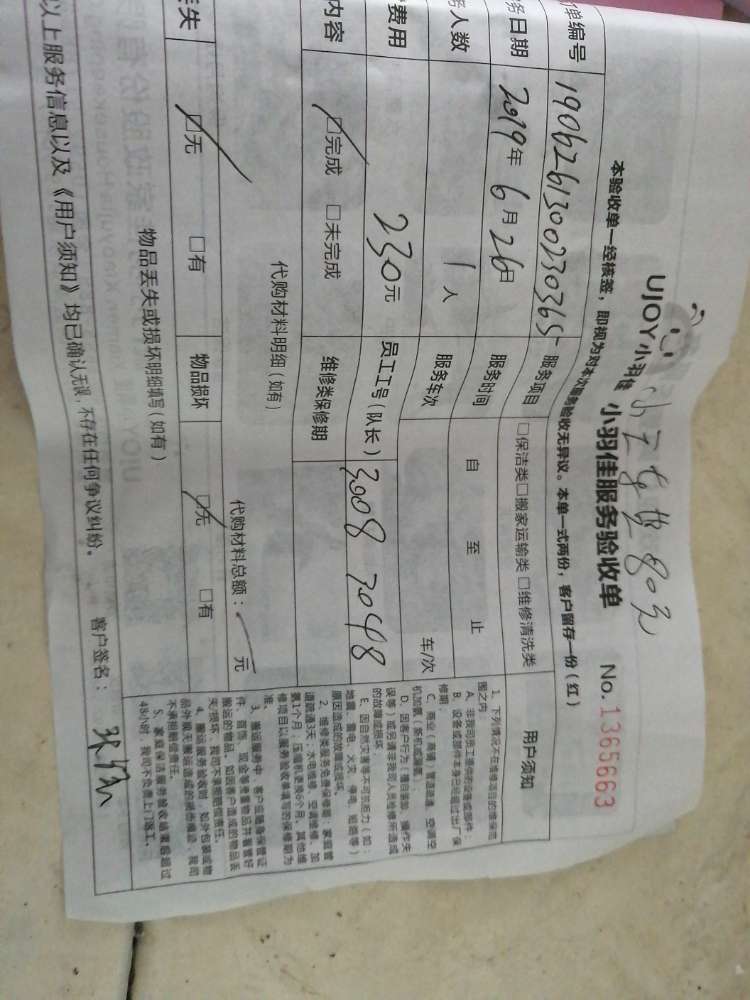 UJOY小羽佳 小羽佳服务验收单 No.1365663
80元
本验收单一经核签，即视为对本次服务验收无异议。本单一式两份，客户留存一份(红)
单编号 190626130023036 服务项目 □保洁类□搬家运输类□维修清洗类
务日期 2019年6月26日 服务时间 自 至 止
务人数 1人 服务车次 车/次
费用 230元 员工工号(队长) 3008 3048
内容 ☑完成 □未完成 维修类保修期
代购材料明细(如有) 代购材料总额： 元
丢失 ☑无 □有 物品损坏 ☑无 □有
物品丢失或损坏明细填写(如有)
以上服务信息以及《用户须知》均已确认无误，不存在任何争议纠纷。 客户签名：
用户须知
1、下列情况不在维修项目的维保范
围之内：
A、非我司员工提供的设备或部件；
B、设备或部件本身已经超过出厂保
修期；
C、商业(商铺)管道疏通、空调空
D、因客户行为(擅自装卸、操作失
误等)或另请非我司人员维修所造成
的故障或损坏
E、因自然灾害等不可抗力(如：
地震、雷电、火灾、停电、短路等)
原因造成的故障或损坏。
2、维修类服务免费保修期：家庭管
道疏通3天；水电维修、空调维修、加
氨1个月；压缩机更换6个月，其他维
修项目以服务验收单填写的保修期为
准。
3、搬运服务中，客户应随身保管证
件、首饰、现金等贵重物品并看管好
搬运的物品。如因客户造成的物品丢
失/损坏，我司不承担赔偿责任。
4、搬运服务验收时，如外包装或物
不承担赔偿责任。
5、家庭保洁服务验收结束后超过
48小时，我司不负责上门返工。